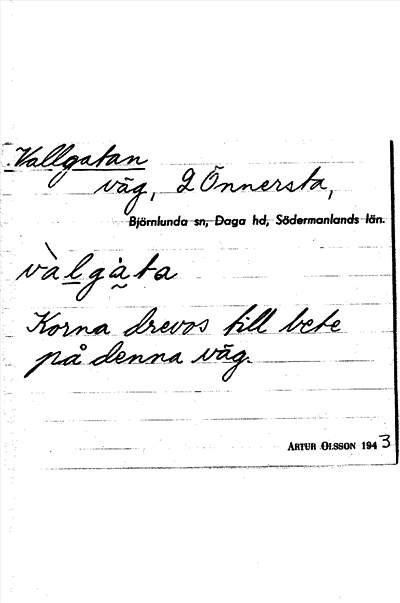 Vallgatan
väg, 2 Önnersta,
Björnlunda sn, Daga hd, Södermanlands län.
vàl̲gà̰ta
Korna drevos till bete
på denna väg.
ARTUR OLSSON 1943